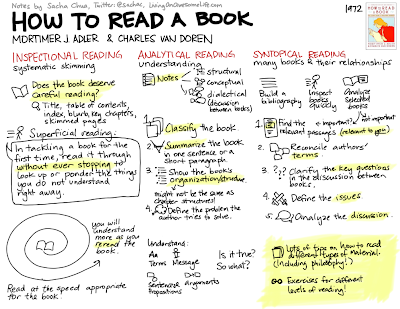 Notes by Sacha Chua, Twitter: @sachac, LivingAnAwesomeLife.com
HOW TO READ A BOOK
MORTIMER J ADLER & CHARLES VAN DOREN
1972
HOW TO READ
A BOOK
INSPECTIONAL READING
systematic skimming
Does the book deserve
careful reading?
Title, table of contents,
index, blurb, key chapters,
skimmed pages
Superficial reading:
In tackling a book for the
first time, read it through
without ever stopping to
look up or ponder the things
you do not understand
right away.
you will
understand
more as you
reread the
book!
Read at the speed appropriate
for the book!
ANALYTICAL READING
understanding
Notes
structural
conceptual
dialectical
(discussion
between
books)
1. Classify the book
2. Summarize the book
in one sentence or a
short paragraph.
3. Show the book's
organization/structure
might not be the same as
chapter structure!
4. Define the problem the
author tries to solve.
Understand:
Aa
Terms Message
Sentences
Propositions
arguments
Is it true?
So what?
SYNTOPICAL READING
many books & their relationships
Build a
bibliography
Inspect
books
quickly
Analyze
Selected
books
1. Find the important! not important
relevant passages (relevant to you)
2. Reconcile authors'
terms.
3. ?? Clarify the key questions
in the discussion between
books.
4. Define the issues.
5. Analyze the discussion.
Lots of tips on how to read
different types of material.
(including philosophy!)
Exercises for different
levels of reading!